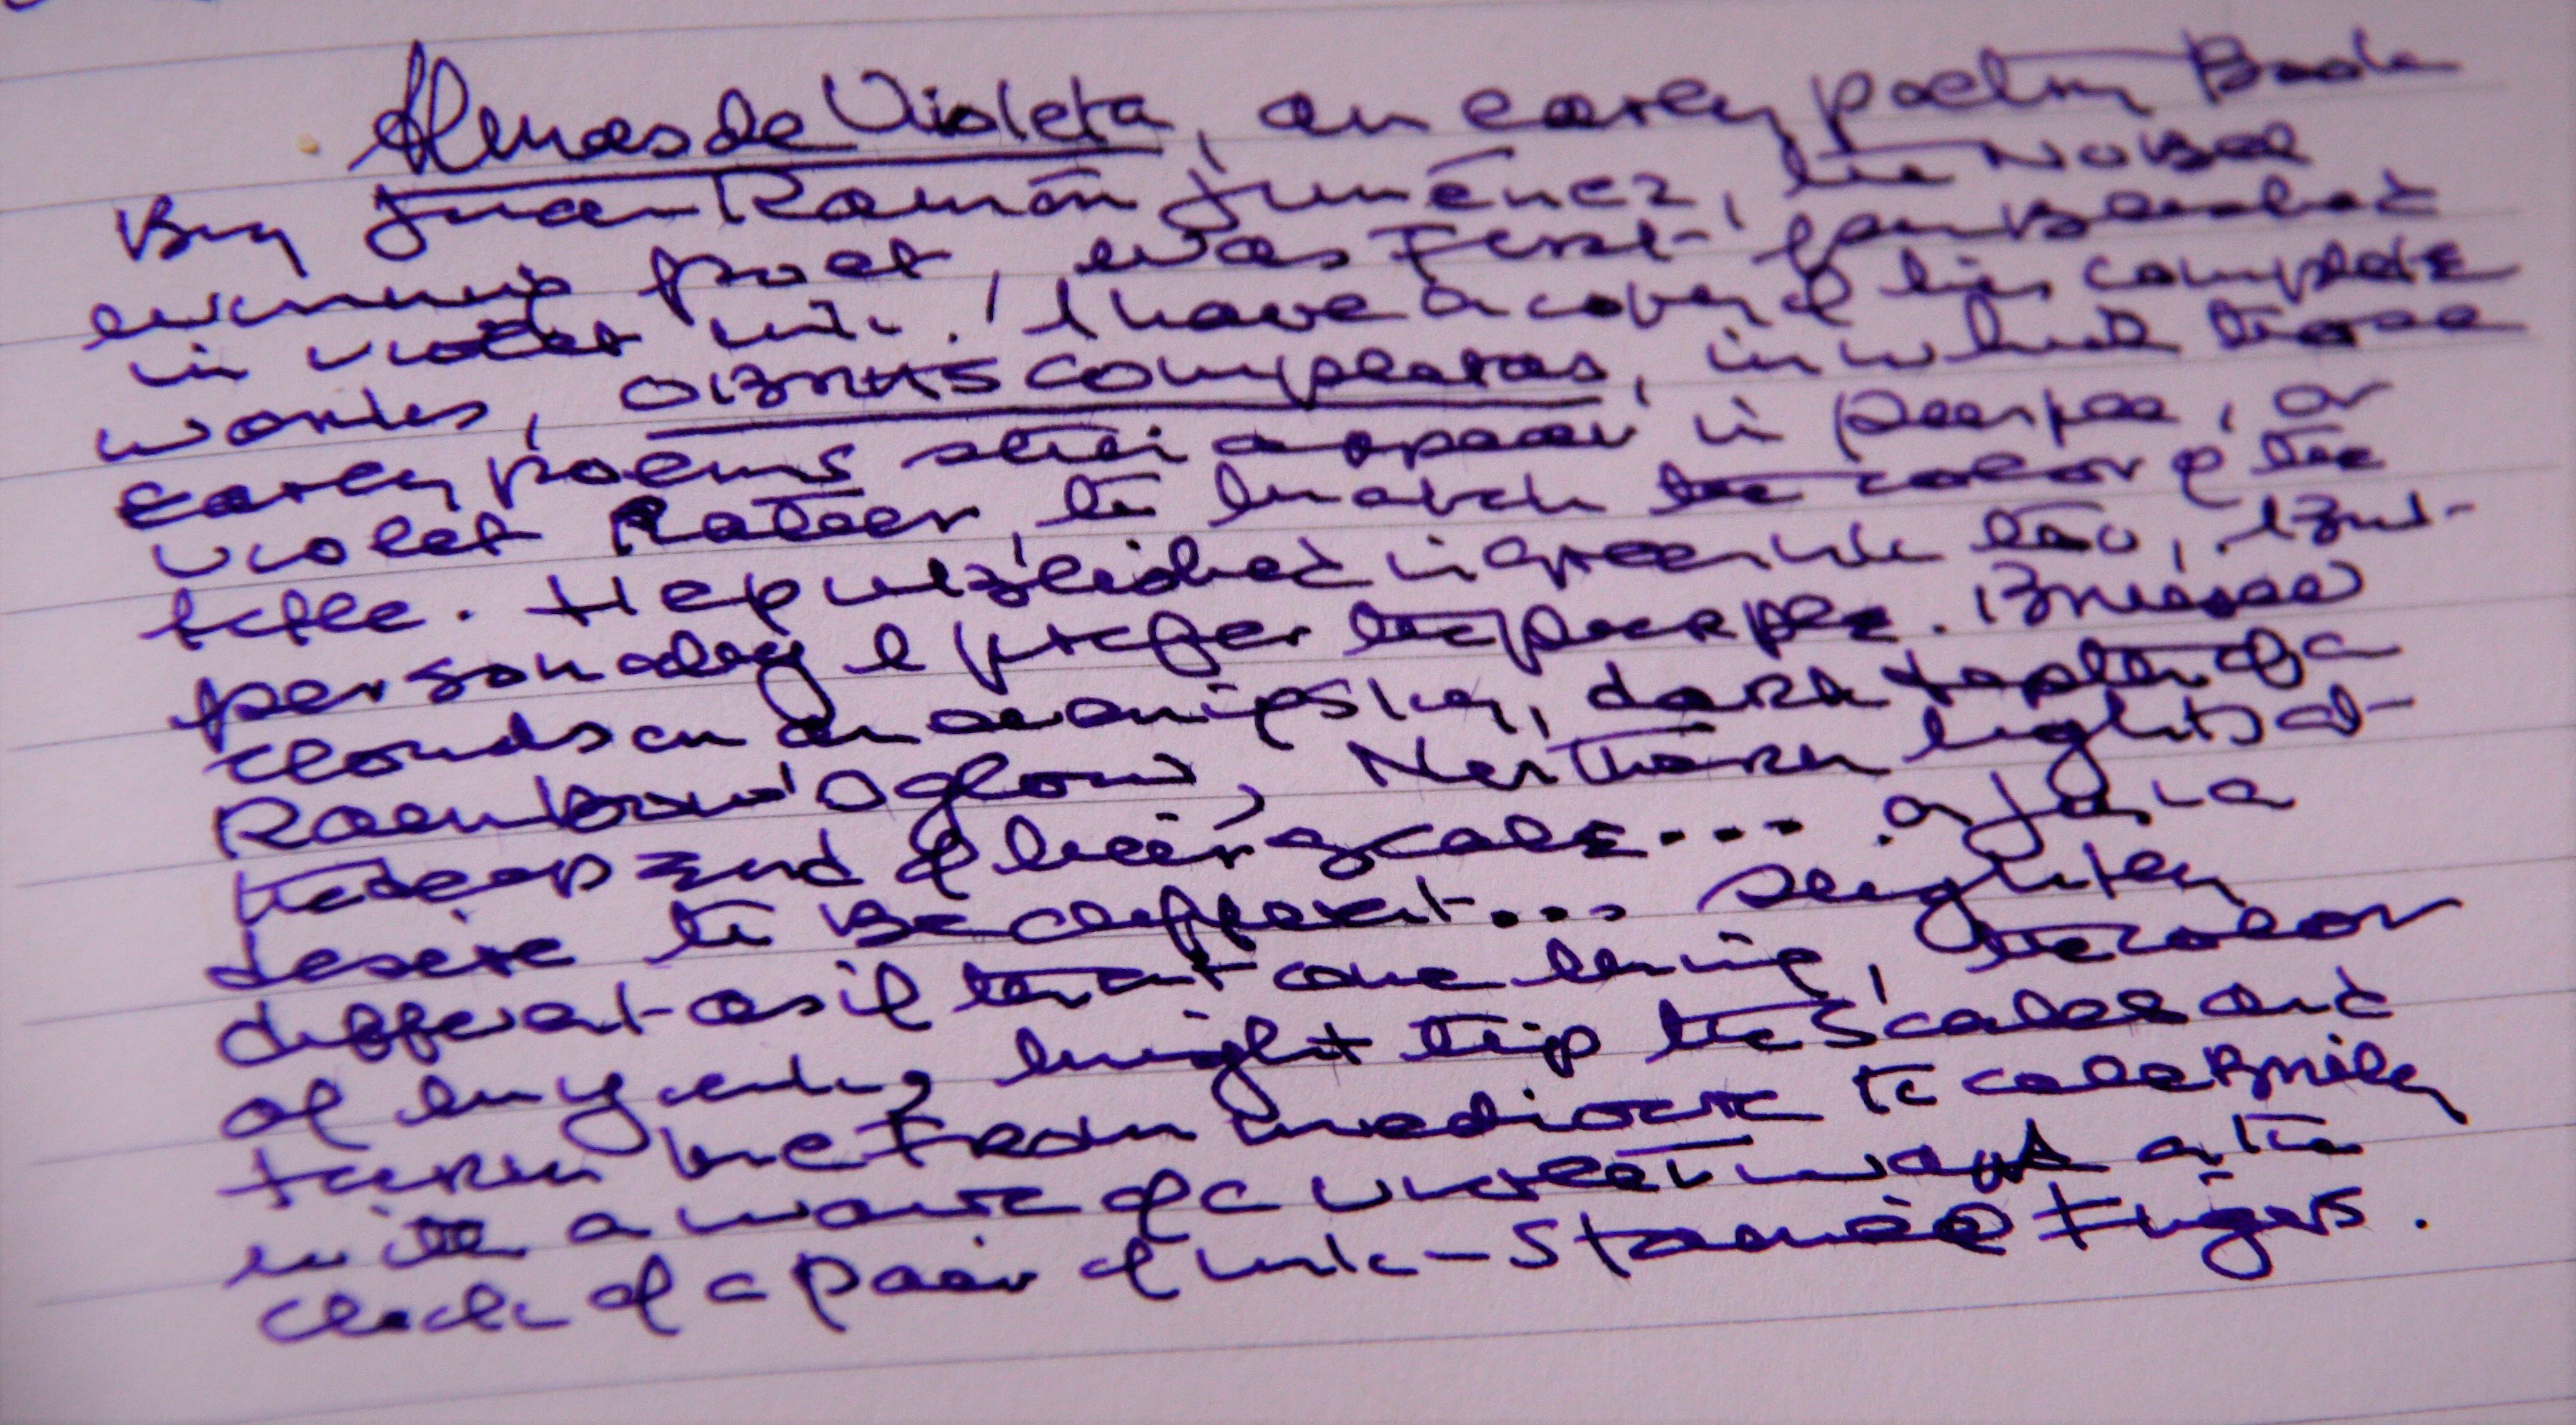 Almas de Violeta, an early poetry Book
By Juan Ramón Jiménez, the Nobel
winning poet, was first published
in violet ink. I have a copy of his complete
works, OBRAS completas, in which those
early poems still appear in purple, or
violet Rather, to match the color of the
title. He published in green ink too, but
personally I prefer the purple. Bruised
clouds on an evening sky, dark
Rainbow's glow, Northern lights at
the deep end of their scale... or for a
desire to be different... slightly
different as if that one thing, the color
of my ink, might tip the scales and
turn me from mediocre to celebrity
with a wave of a violet wand or the
click of a pair of ink-stained fingers.